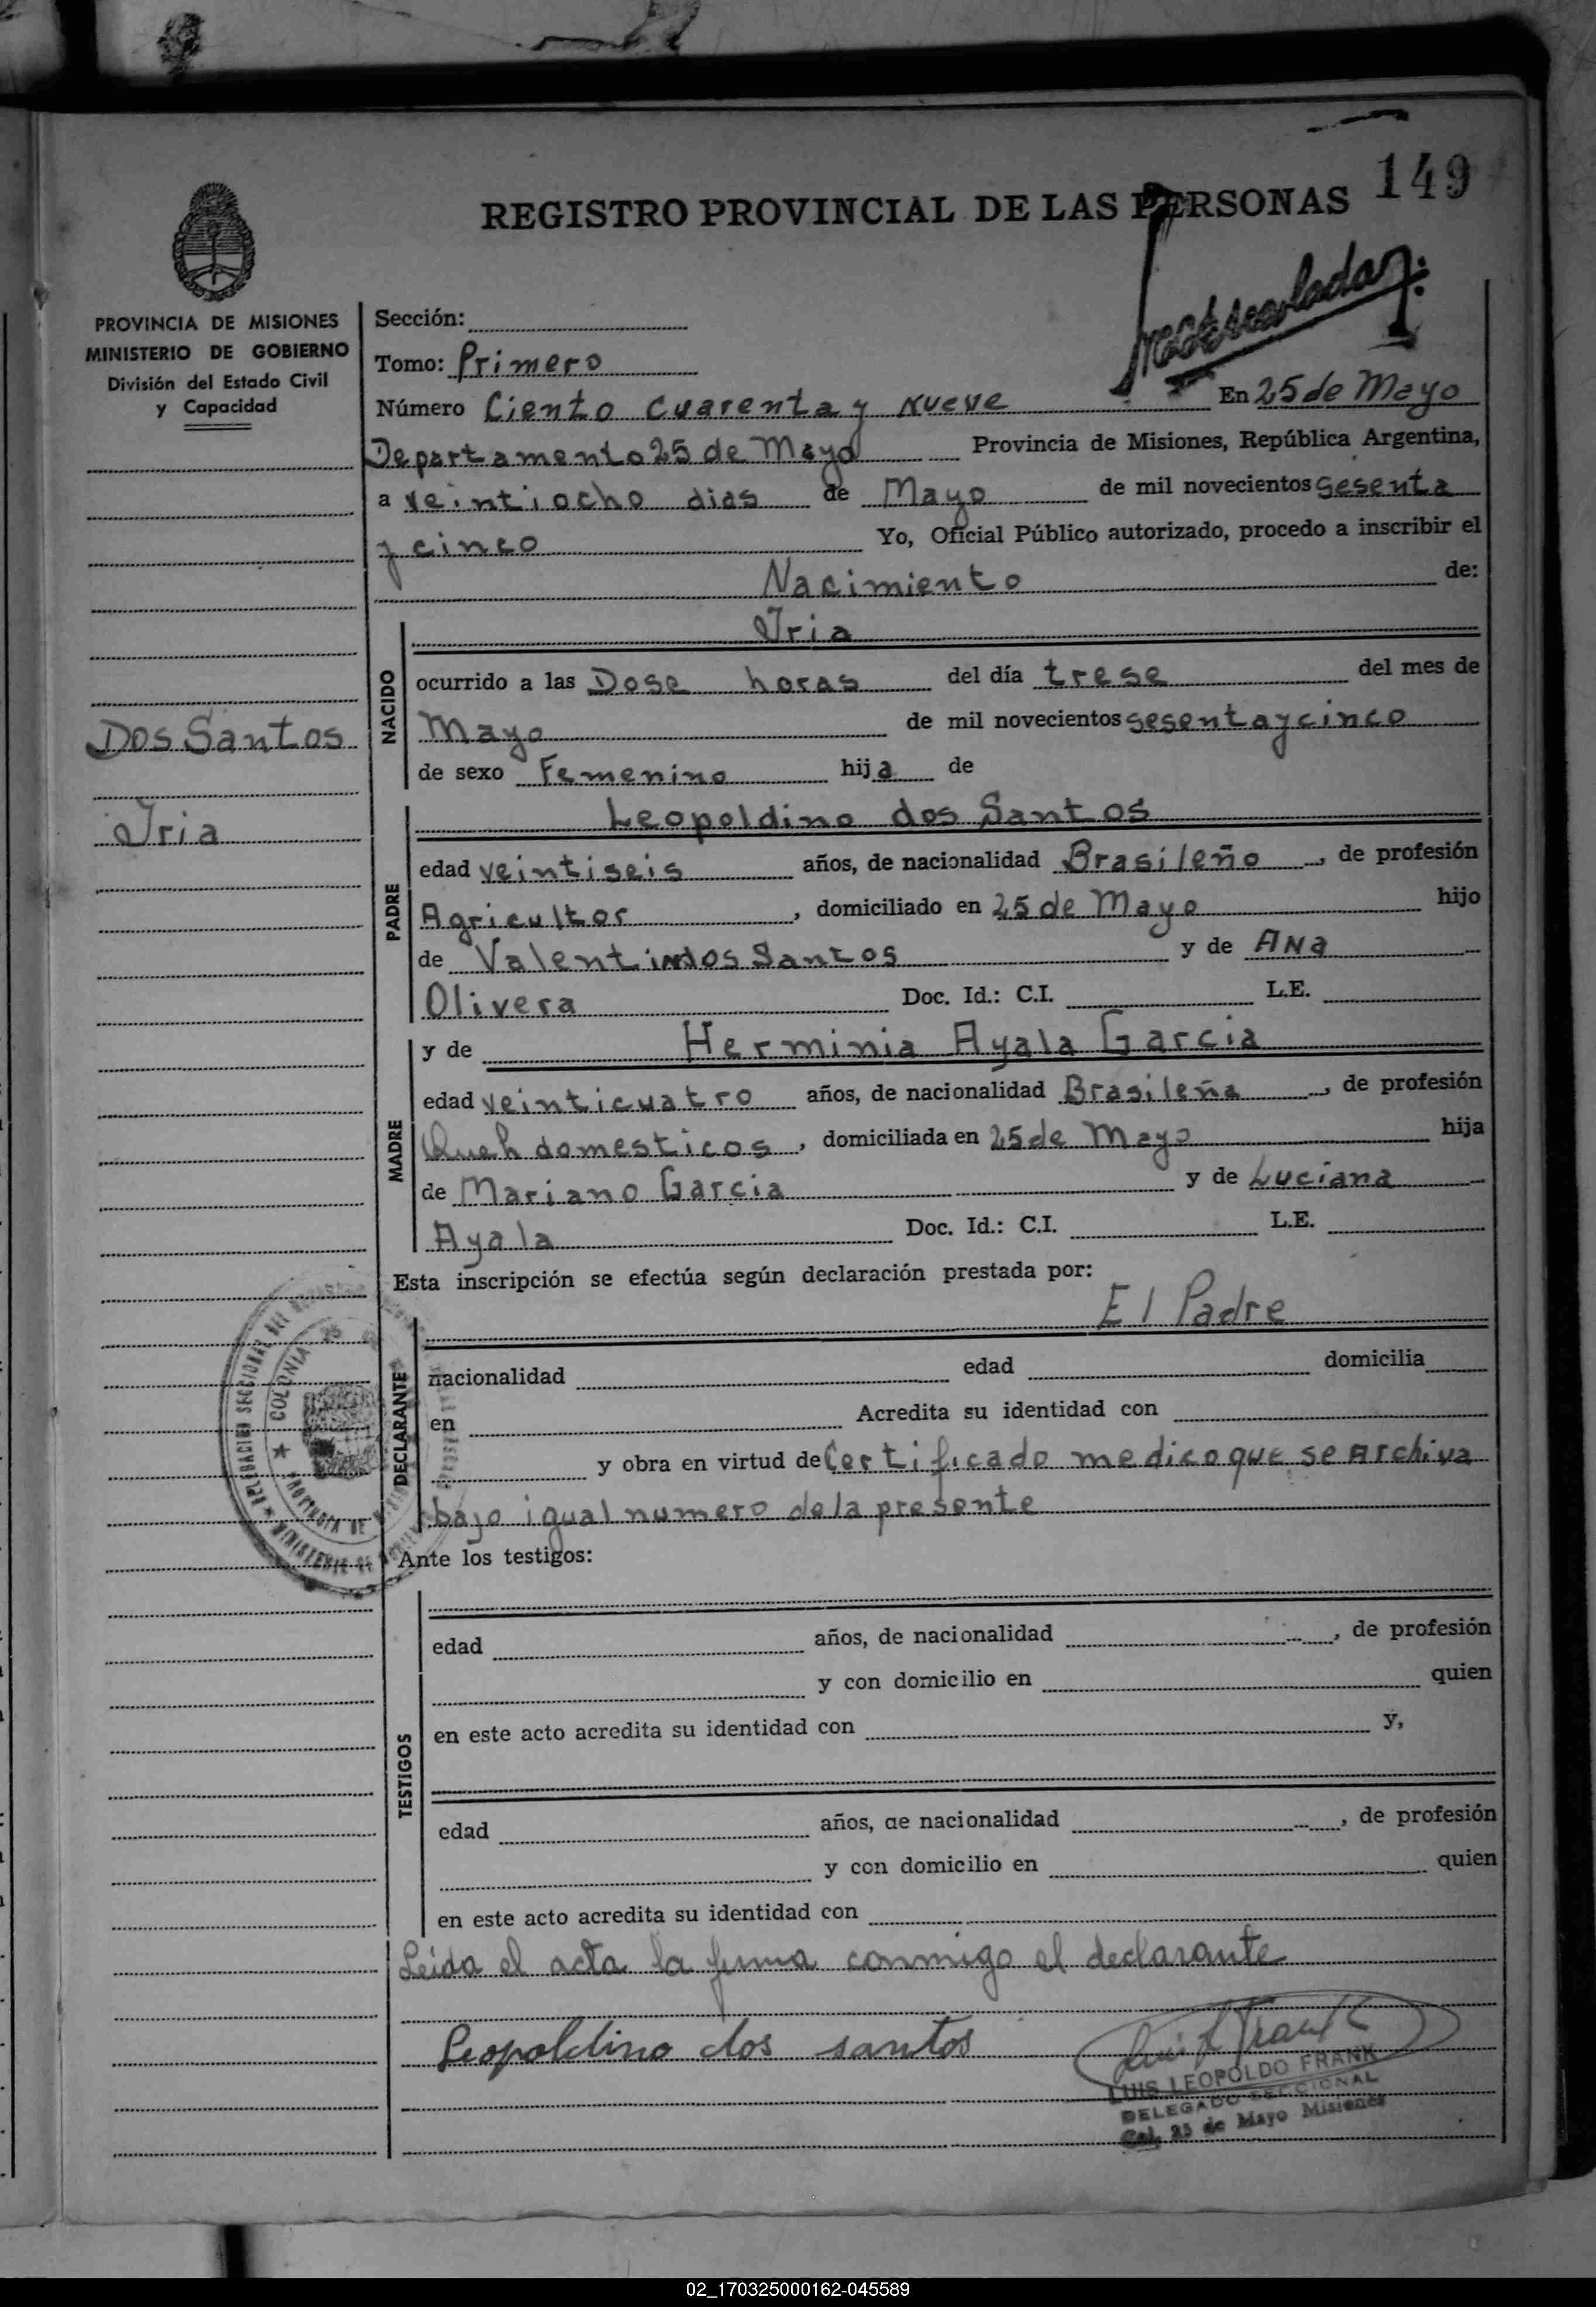 149
REGISTRO PROVINCIAL DE LAS PERSONAS
PROVINCIA DE MISIONES
MINISTERIO DE GOBIERNO
División del Estado Civil
y Capacidad
Sección:
Tomo: Primero
Número Ciento cuarenta y nueve En 25 de Mayo
Departamento 25 de Mayo Provincia de Misiones, República Argentina,
a veintiocho dias de Mayo de mil novecientos sesenta
y cinco Yo, Oficial Público autorizado, procedo a inscribir el
Nacimiento de:
Iria
NACIDO
ocurrido a las Dose horas del día trese del mes de
Mayo de mil novecientos sesentaycinco
de sexo Femenino hija de
Dos Santos
Iria
Leopoldino dos Santos
PADRE
edad veintiseis años, de nacionalidad Brasileño, de profesión
Agricultor, domiciliado en 25 de Mayo hijo
de Valentin dos Santos y de Ana
Olivera Doc. Id.: C.I. L.E.
y de Herminia Ayala Garcia
MADRE
edad veinticuatro años, de nacionalidad Brasileña, de profesión
Queh domesticos, domiciliada en 25 de Mayo hija
de Mariano Garcia y de Luciana
Ayala Doc. Id.: C.I. L.E.
Esta inscripción se efectúa según declaración prestada por:
El Padre
DECLARANTE
nacionalidad edad domicilia
en Acredita su identidad con
y obra en virtud de Certificado medico que se Archiva
bajo igual numero de la presente
COLONIA 25
Ante los testigos:
TESTIGOS
edad años, de nacionalidad , de profesión
y con domicilio en quien
en este acto acredita su identidad con y,
edad años, de nacionalidad , de profesión
y con domicilio en quien
en este acto acredita su identidad con
Leida el acta la firma conmigo el declarante
Leopoldino dos santos
LUIS LEOPOLDO FRANK
DELEGADO SECCIONAL
Col. 25 de Mayo Misiones
02_170325000162-045589